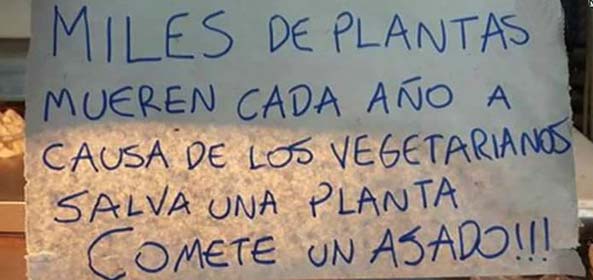 MILES DE PLANTAS
MUEREN CADA AÑO A
CAUSA DE LOS VEGETARIANOS
SALVA UNA PLANTA
COMETE UN ASADO!!!